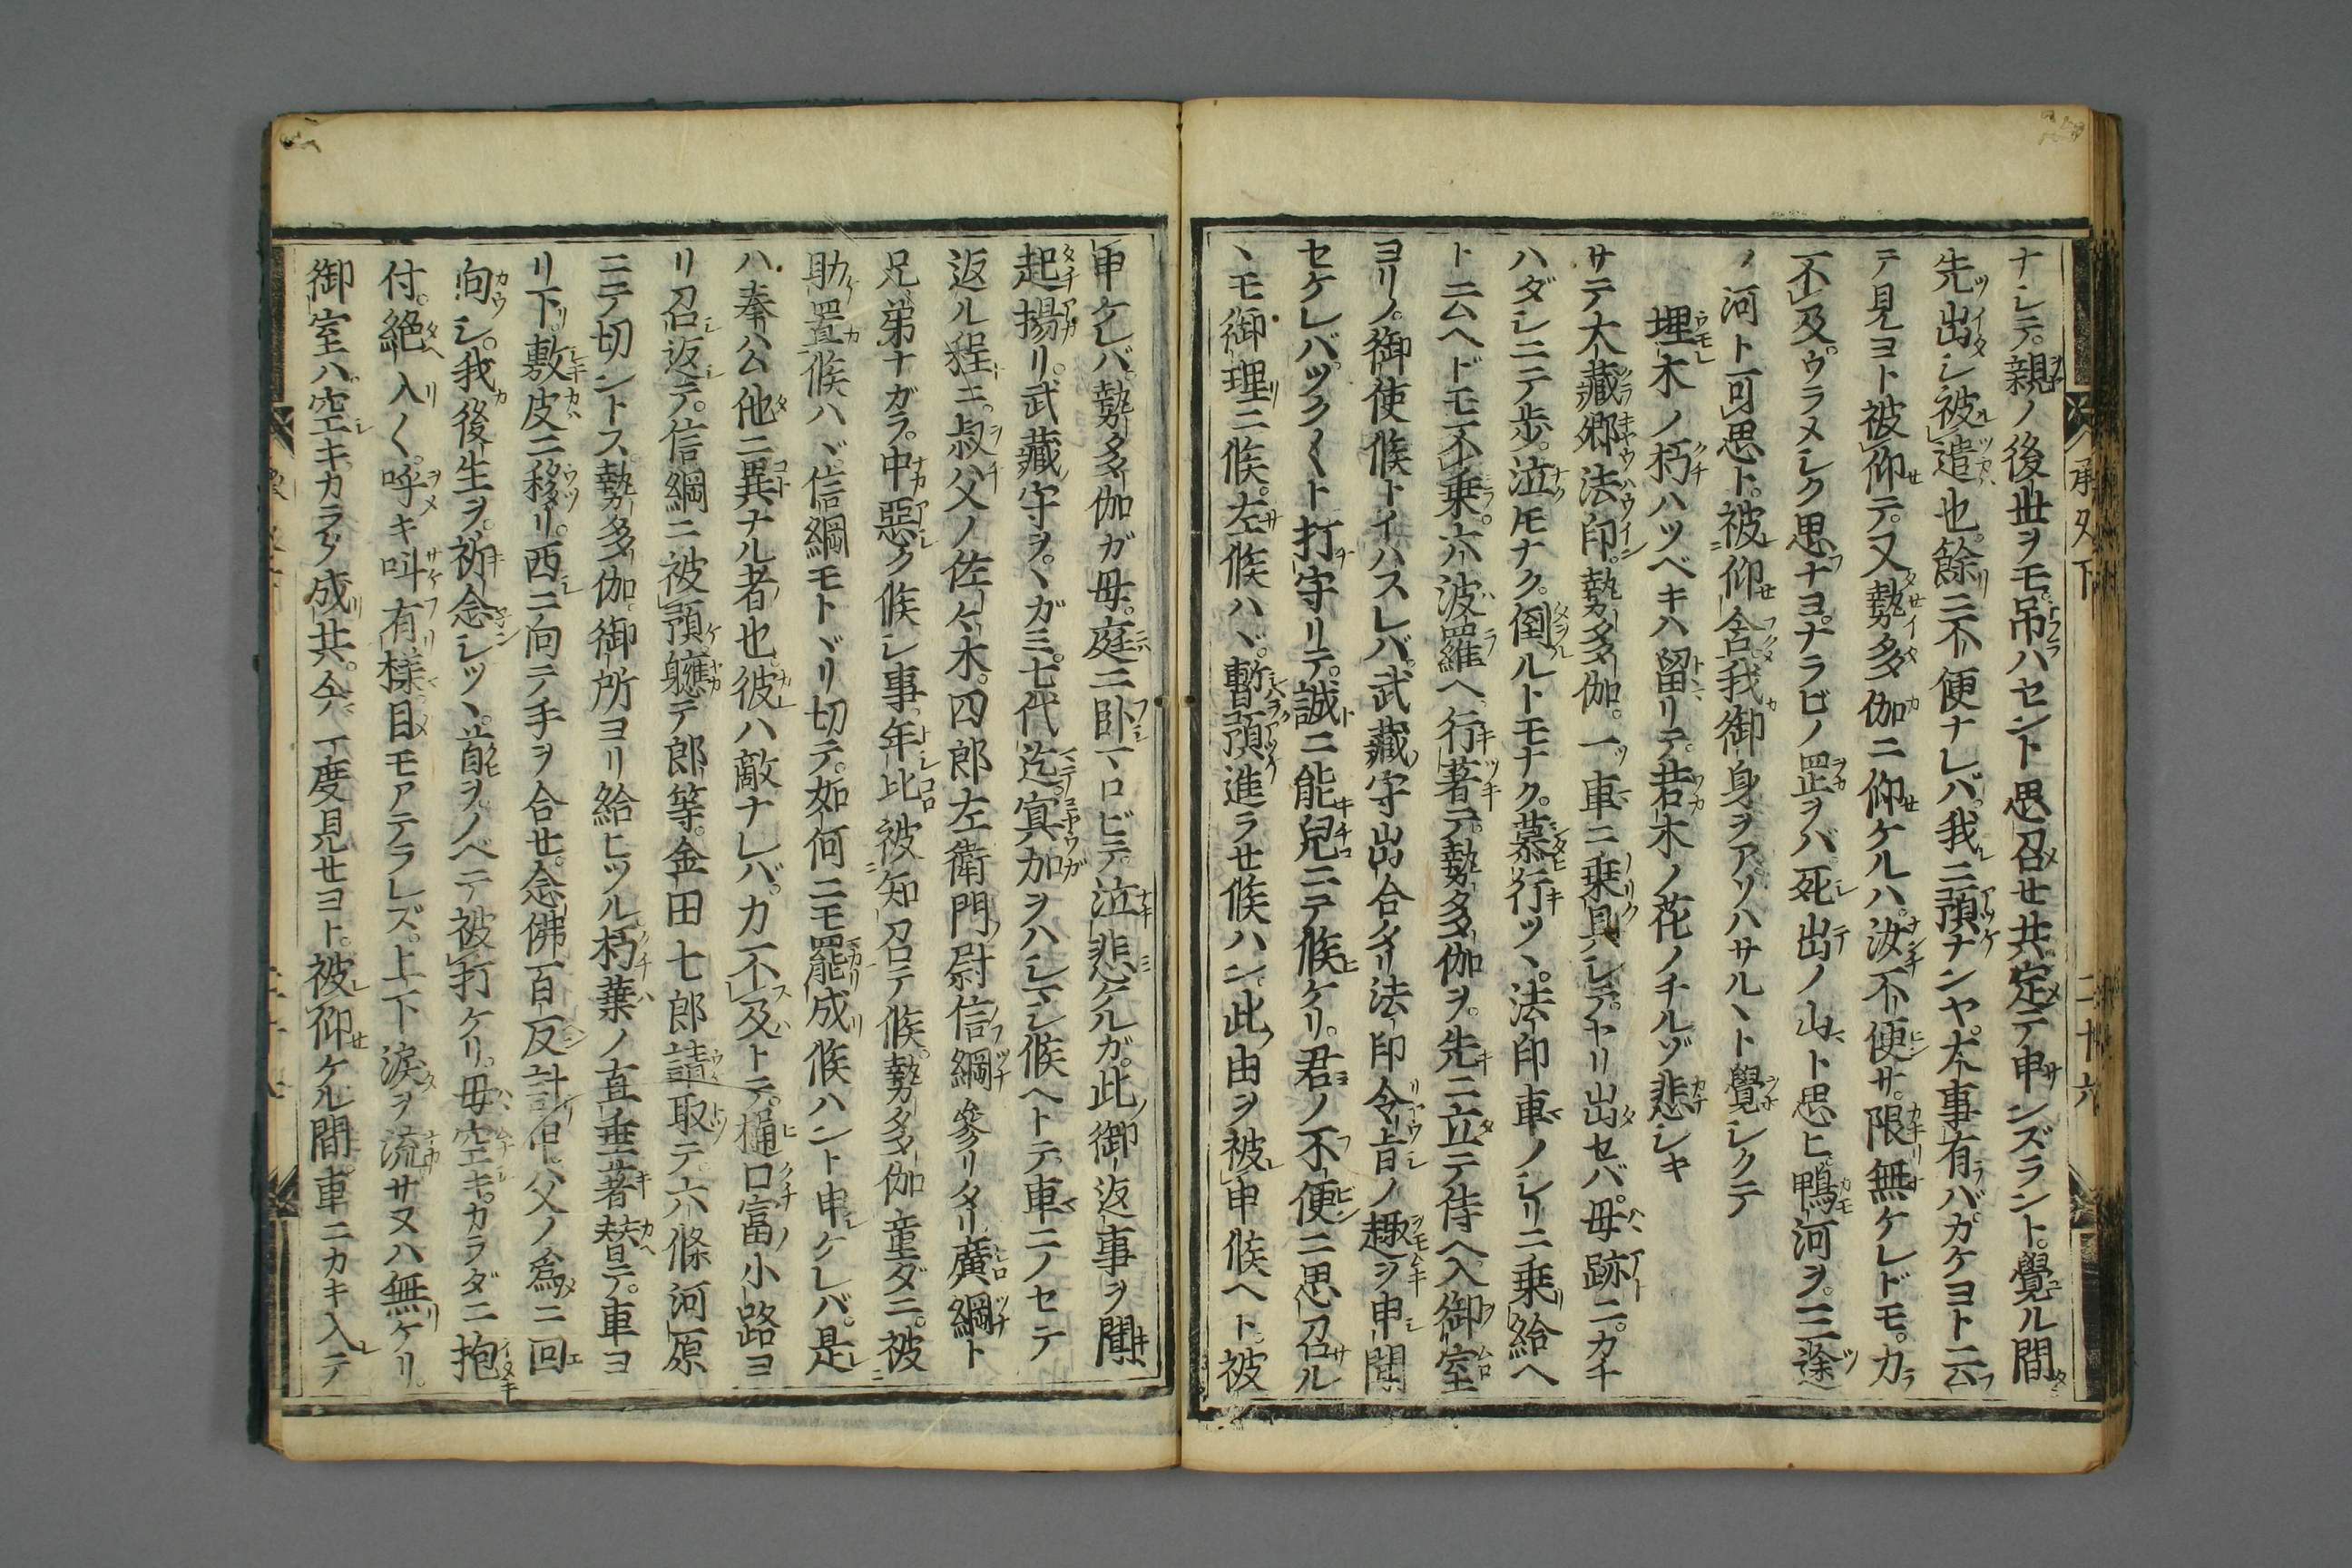 承久下
二十六
ナシテ。親ノ後世ヲモ。弔ハセント思召セ共。定テ申サンズラント。覺ル間
先出シ被遣也。餘ニ不便ナレバ。我ニ預ナンヤ。大事有バガケヨト云
テ見ヨト被仰テ。又勢多伽ニ仰ケルハ。汝不便サ。限無ケレドモ。力
不及。ウラメシク思ナヨ。ナラビノ罡ヲバ。死出ノ山ト思ヒ。鴨河ヲ。三途
ノ河ト可思ト。被仰含。我御身ヲアソハサルヽト覺シクテ
埋木ノ朽ハツベキハ留リテ。若木ノ花ノチルゾ悲シキ
サテ大藏郷法印。勢多伽。一車ニ乗具シテ。ヤリ出セバ。母跡ニ。カチ
ハダシニテ歩。泣トモナク。倒ルトモナク。慕行ツヽ。法印車ノシリニ乗給ヘ
ト云ヘドモ不乗。六波羅ヘ。行著テ。勢多伽ヲ。先ニ立テ侍ヘ入。御室
ヨリノ。御使候トイハスレバ。武藏守出合タリ。法印令旨ノ趣ヲ申聞
セケレバ。ツク〱ト打守リテ。誠ニ能兒ニテ候ケリ。君ノ不便ニ思召ル
ヽモ御理ニ候。左候ハヾ。暫預進ラセ候ハン。此由ヲ被申候ヘト。被
申ケレバ。勢多伽ガ母。庭ニ臥マロビテ。泣悲ケルガ。此御返事ヲ聞。
起揚リ。武藏守ヲ。ヽガミ。七代迄。冥加ヲハシマシ候ヘトテ。車ニノセテ
返ル程ニ。叔父ノ佐々木。四郎左衛門尉信綱參リタリ。廣綱ト
兄弟ナガラ。中惡ク候シ事。年比被知召テ候。勢多伽童ダニ。被
助置候ハヾ。信綱モトヾリ切テ。如何ニモ罷成候ハント申ケレバ。是
ハ奉公他ニ異ナル者也。彼ハ敵ナレバ。力不及トテ。樋口富小路ヨ
リ召返テ。信綱ニ被預。軈テ郎等。金田七郎請取テ。六條河原
ニテ切ントス。勢多伽。御所ヨリ給ヒツル朽葉ノ直垂著替テ。車ヨ
リ下。敷皮ニ移リ。西ニ向テ手ヲ合セ。念佛百反計申。父ノ爲ニ回
向シ。我後生ヲ。祈念シツヽ。首ヲノベテ被打ケリ。母空キ。カラダニ抱
付。絶入〱。呼キ叫有様。目モアテラレズ。上下涙ヲ流サヌハ無ケリ。
御室ハ空キカラダ成共。今一度見セヨト。被仰ケル間。車ニカキ入テ